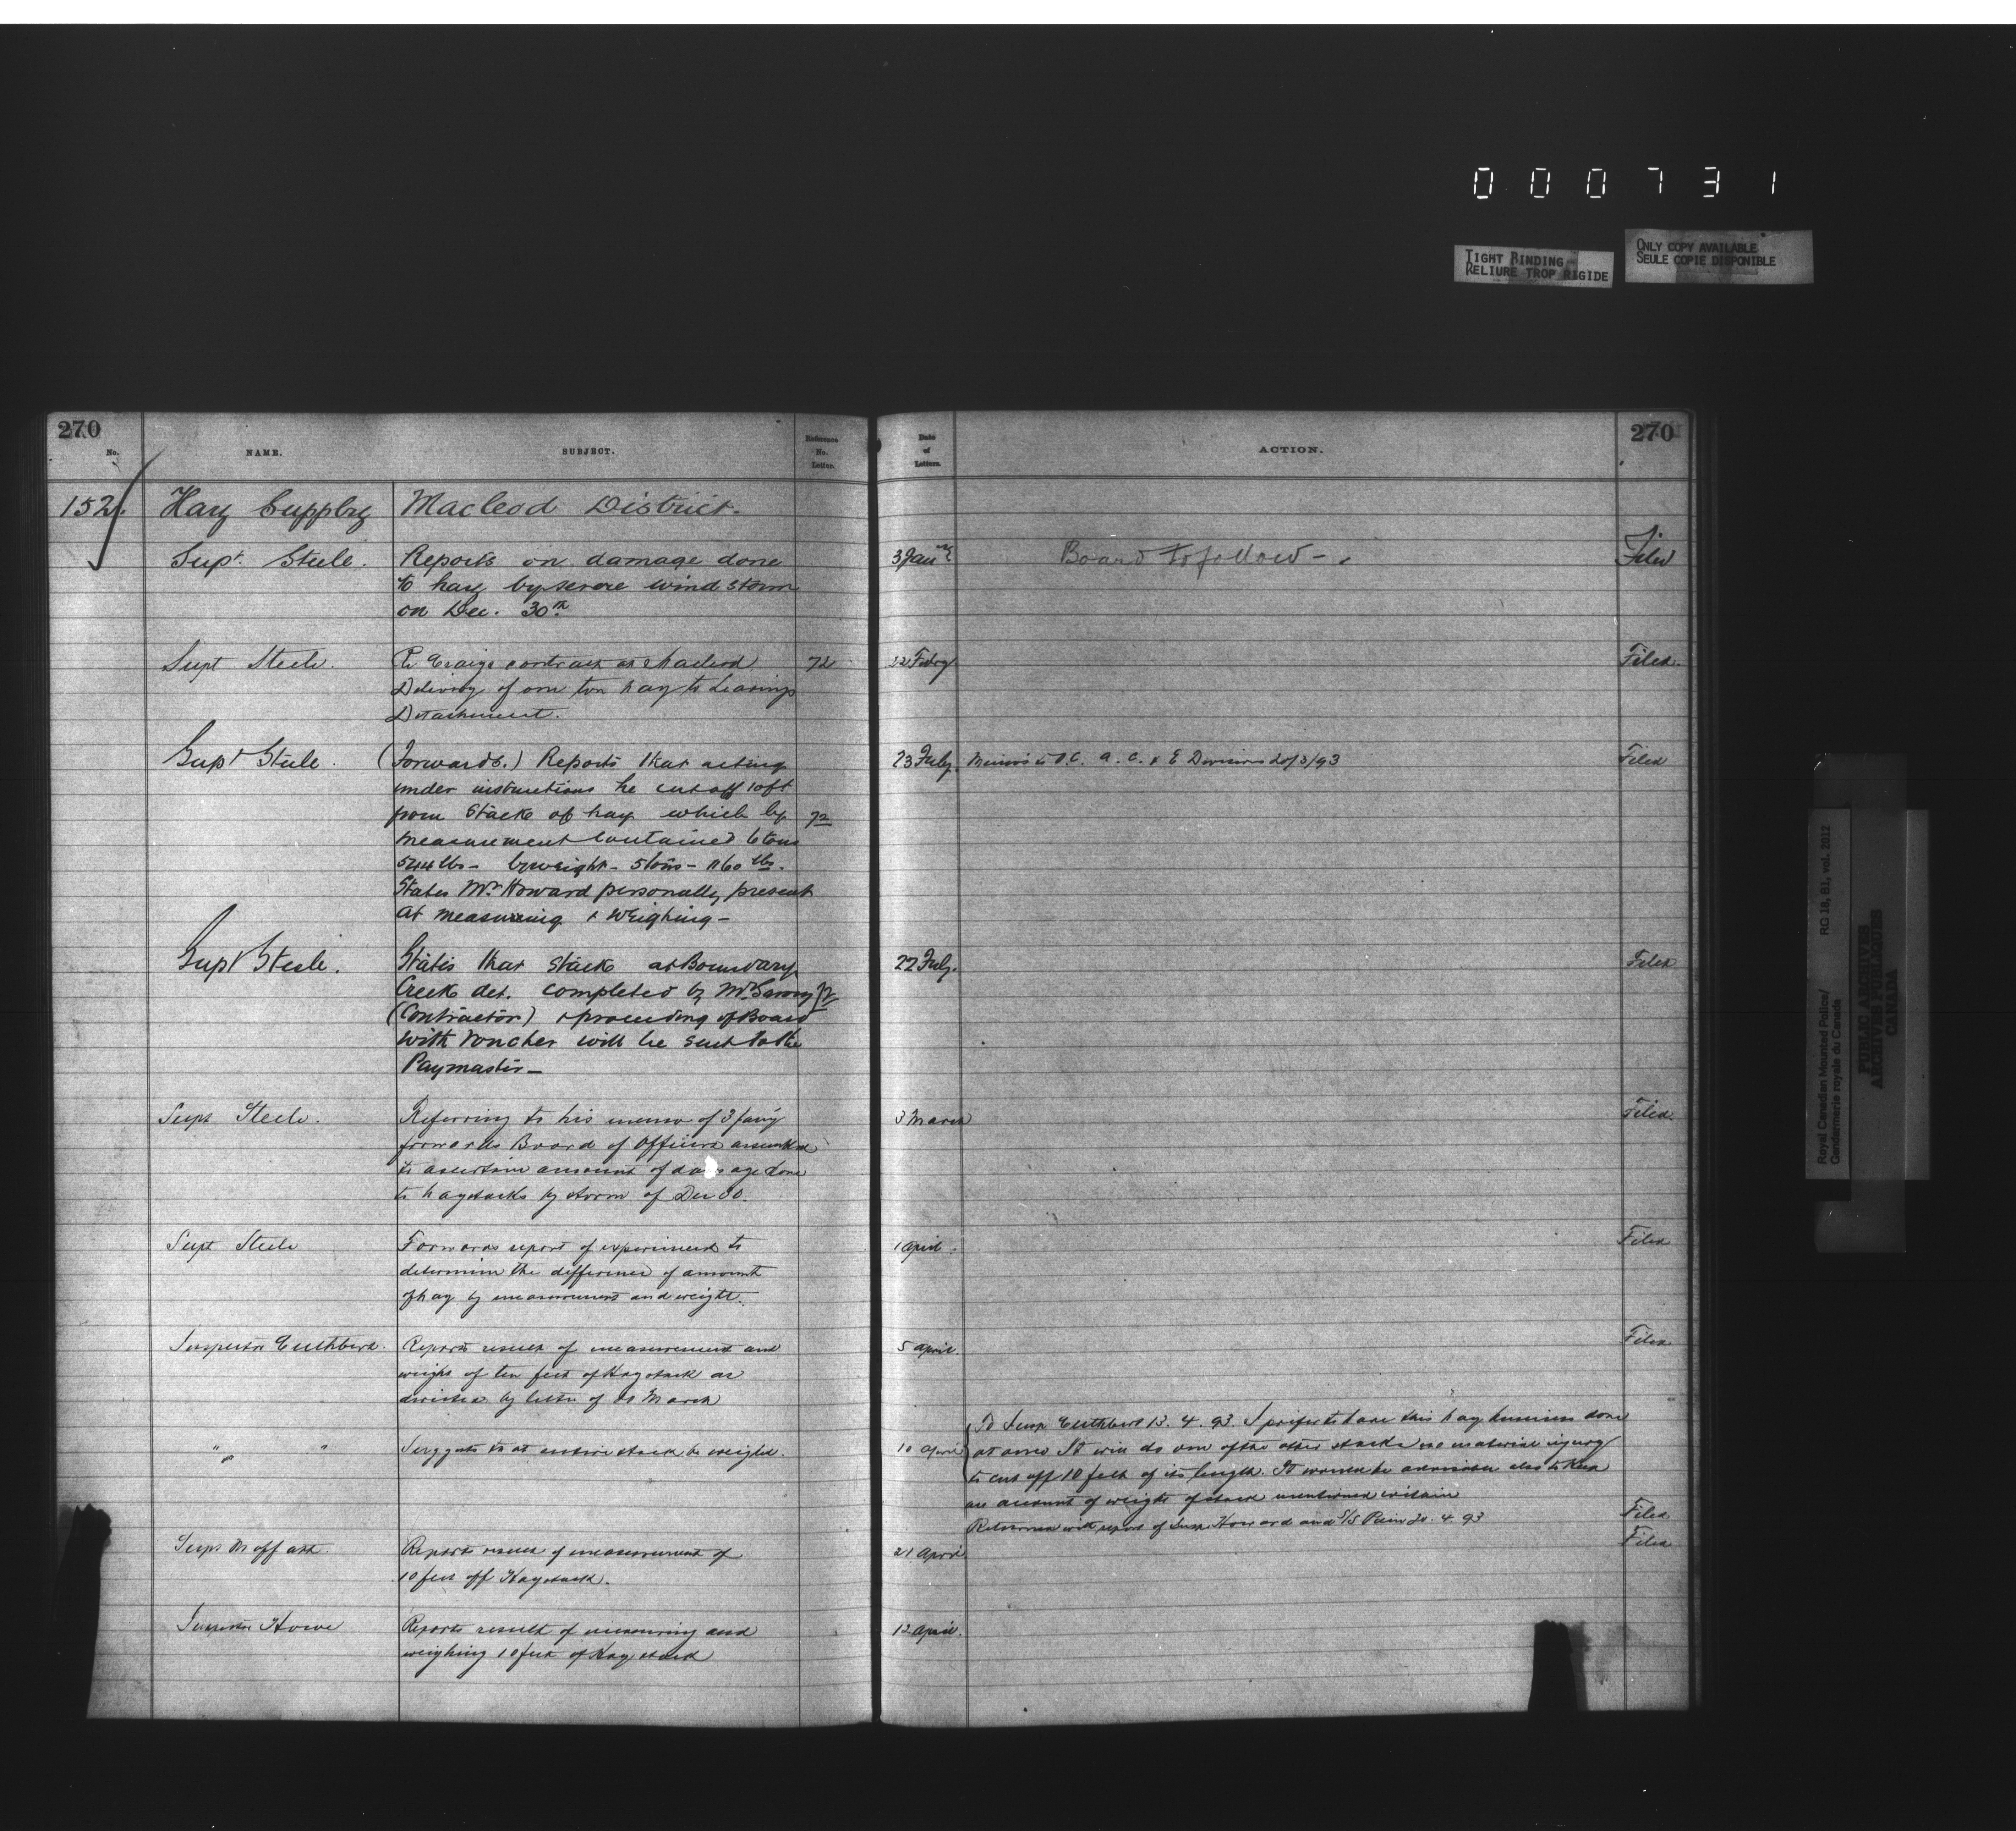 000731
TIGHT BINDING
RELIURE TROP RIGIDE
ONLY COPY AVAILABLE
SEULE COPIE DISPONIBLE
270
No.
NAME.
SUBJECT.
Reference No. Letter.
Date of Letters.
ACTION.
270
152. Hay Supply Macleod District.
Supt. Steele. Reports on damage done 3 Jany Board to follow - Filed
to hay by severe wind storm
on Dec. 30th
Supt Steele. Re Craigs contract at Macleod 72 22 Febry Filed.
Delivery of one ton hay to Leavings
Detachment.
Supt Steele. (Forwards.) Reports that acting 23 Feby. Memos to O.C. A. C. & E Divisions 20/3/93 Filed
under instructions he cut off 10 ft
from stack of hay which by 72
measurement contained 6 tons
544 lbs - by weight - 5 tons - 1160 lbs.
States Mr Howard personally present
at measuring & weighing -
Supt Steele. States that stack at Boundary 22 Feby. Filed
Creek det. completed by Mr 72
(Contractor) & proceeding of Board
with voucher will be sent to the
Paymaster -
Supt Steele. Referring to his memo of 3 Jany 3 March Filed
forwards Board of Officers assembled
to ascertain amount of damage done
to haystacks by storm of Dec 30.
Supt Steele Forwards report of experiment to 1 April. Filed
determine the difference of amount
of hay by measurement and weight.
Inspector Cuthbert. Reports result of measurement and 5 April. Filed
weight of ten feet of Haystack as
directed by letter of March
" " " Suggests that entire stack be weighed. 10 April
To Insp Cuthbert 13.4.93. I prefer to have this hay business done
at once It will do one of the other stacks no material injury
to cut off 10 feet of its length. It would be advisable also to keep
an account of weight of stack mentioned within
Returned with report of Insp Howard and S/S 20.4.93 Filed
Supt Moffatt. Reports result of measurement of 21 April Filed
10 feet off Haystack.
Inspector Howe Reports result of measuring and 12 April.
weighing 10 feet of Hay stack
Royal Canadian Mounted Police/
Gendarmerie royale du Canada
RG 18, B1, vol. 2012
PUBLIC ARCHIVES
ARCHIVES PUBLIQUES
CANADA